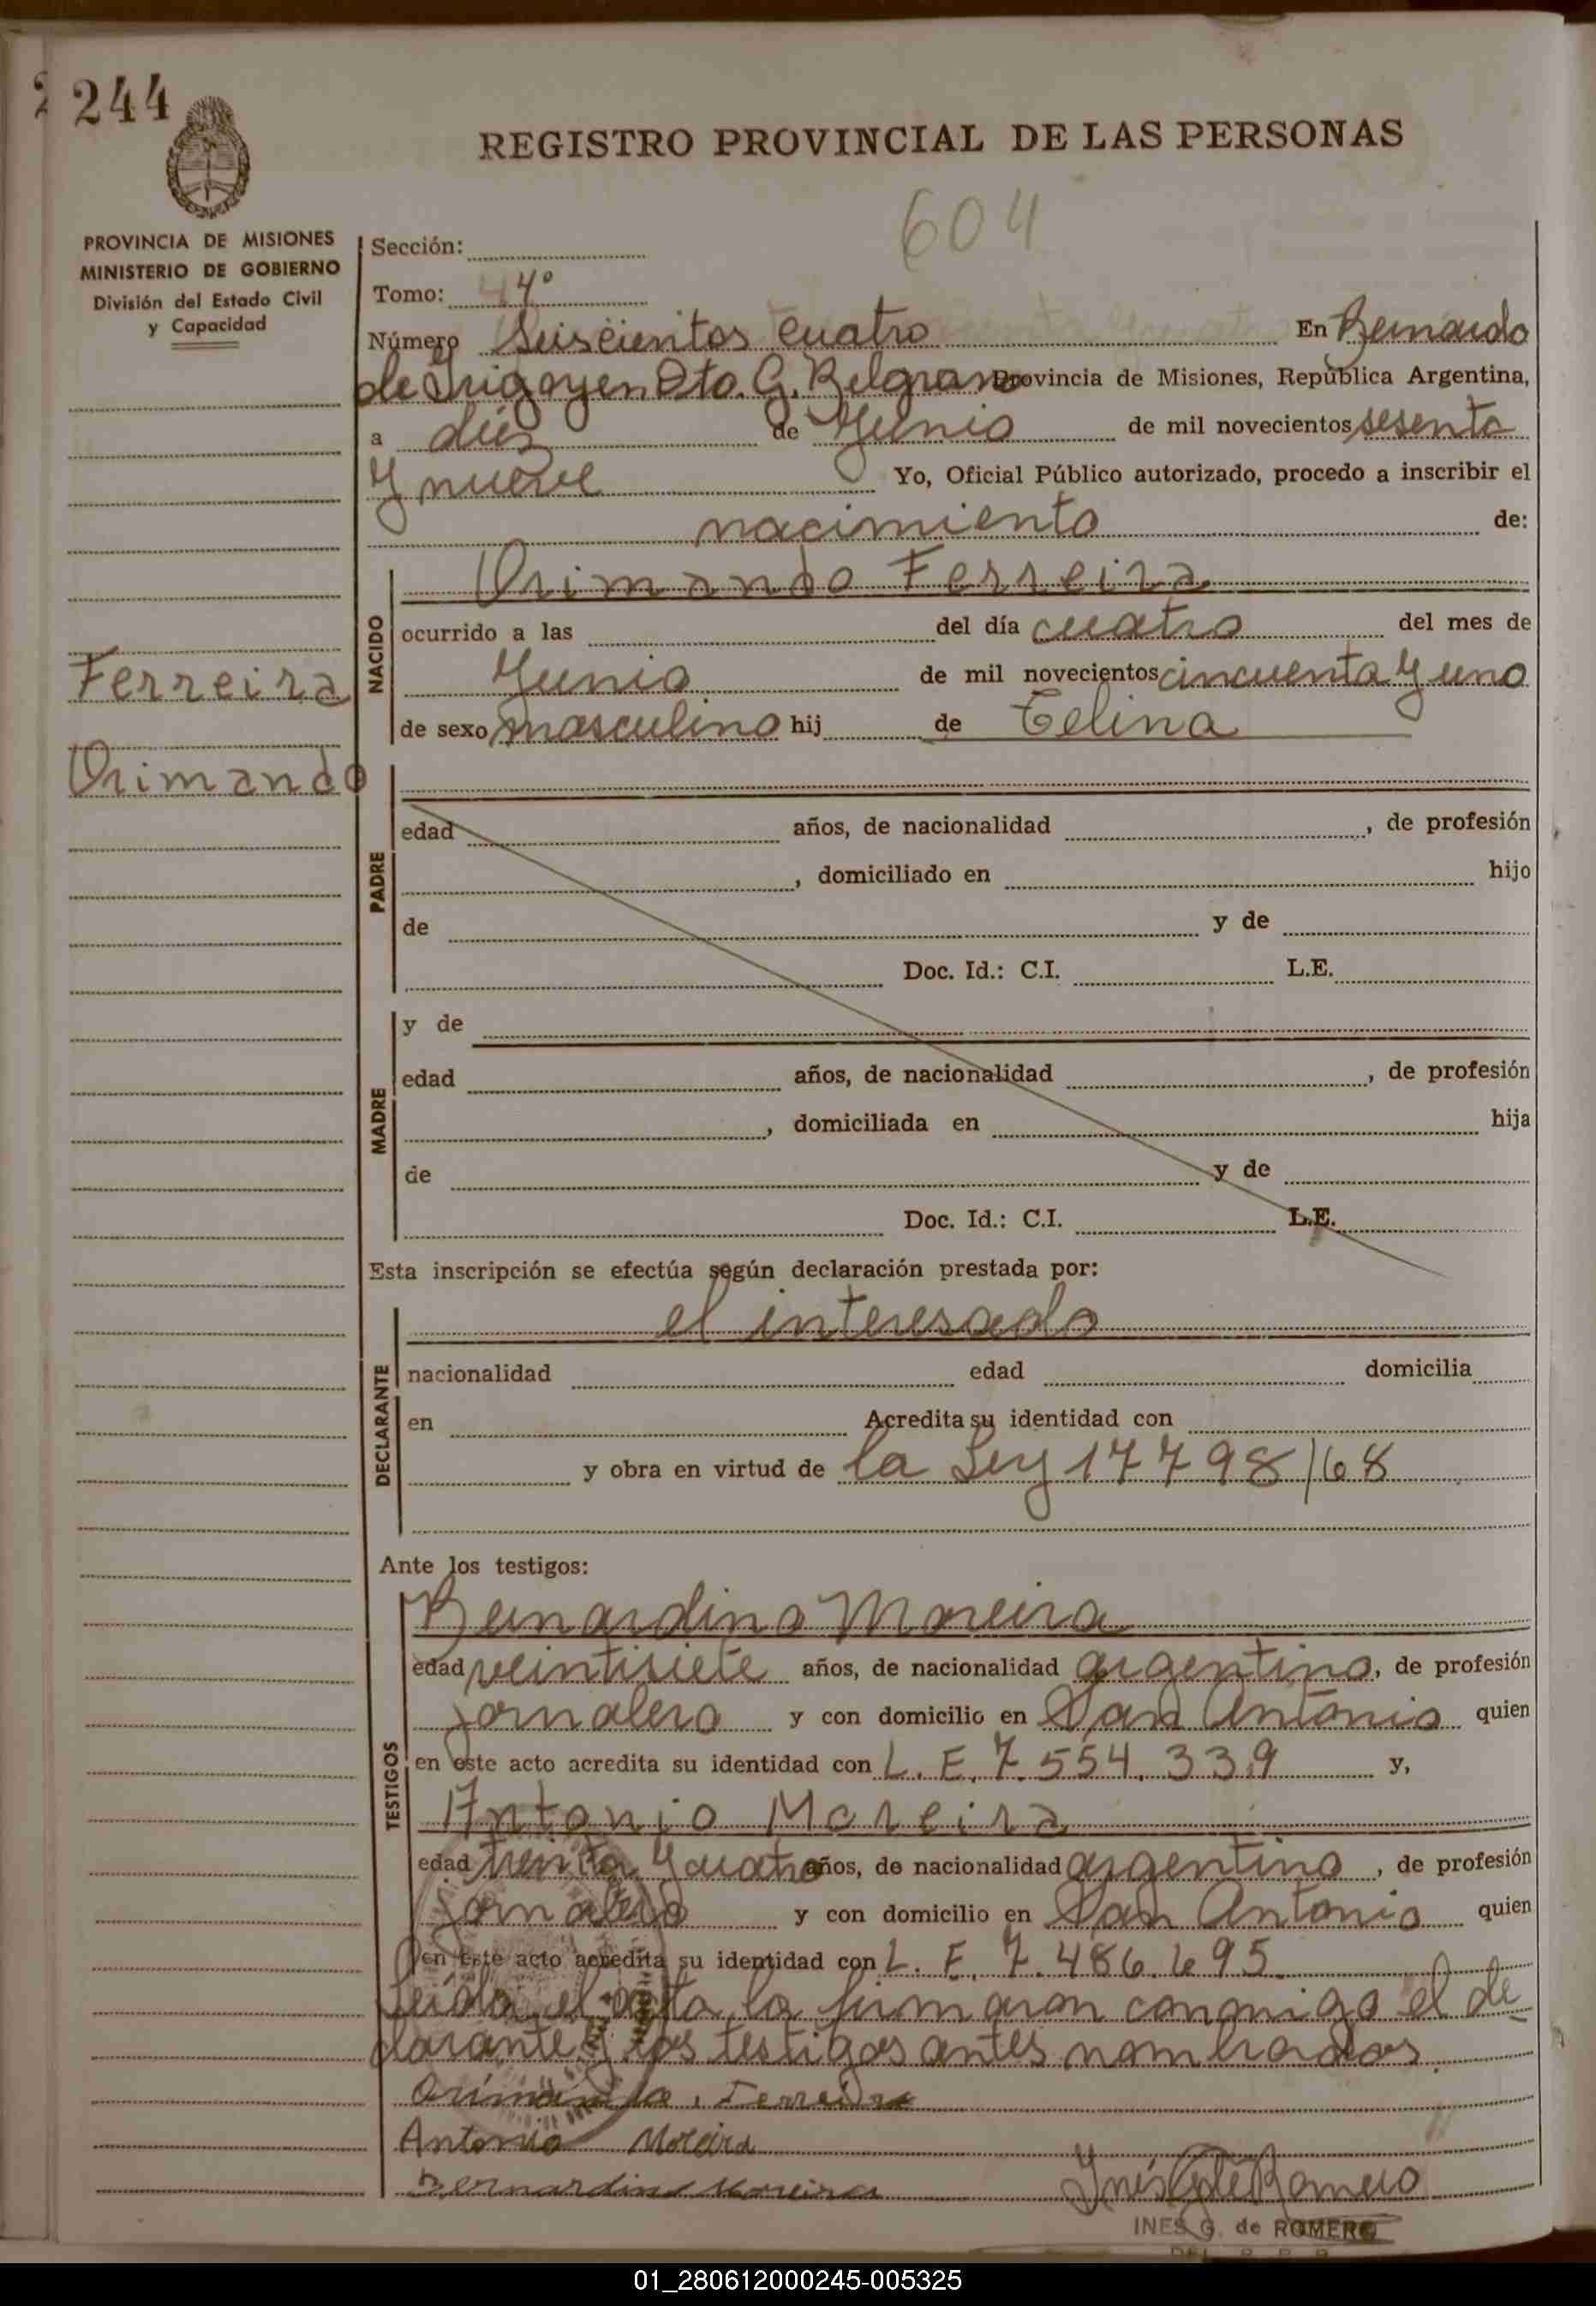 244
REGISTRO PROVINCIAL DE LAS PERSONAS
604
PROVINCIA DE MISIONES
MINISTERIO DE GOBIERNO
División del Estado Civil
y Capacidad
Sección:
Tomo: 4º
Número Seiscientos cuatro En Bernardo
de Irigoyen Dto. G. Belgrano Provincia de Misiones, República Argentina,
a diez de Junio de mil novecientos sesenta
y nueve Yo, Oficial Público autorizado, procedo a inscribir el
nacimiento de:
Orimando Ferreira
NACIDO
ocurrido a las del día cuatro del mes de
Junio de mil novecientos cincuenta y uno
de sexo masculino hij de Celina
Ferreira
Orimando
PADRE
edad años, de nacionalidad , de profesión
, domiciliado en hijo
de y de
Doc. Id.: C.I. L.E.
MADRE
y de
edad años, de nacionalidad , de profesión
, domiciliada en hija
de y de
Doc. Id.: C.I. L.E.
Esta inscripción se efectúa según declaración prestada por:
DECLARANTE
el interesado
nacionalidad edad domicilia
en Acredita su identidad con
y obra en virtud de la Ley 17798/68
Ante los testigos:
TESTIGOS
Bernardino Moreira
edad veintisiete años, de nacionalidad argentino, de profesión
jornalero y con domicilio en San Antonio quien
en este acto acredita su identidad con L. E. 7.554.339 y,
Antonio Moreira
edad treinta y cuatro años, de nacionalidad argentino, de profesión
jornalero y con domicilio en San Antonio quien
en este acto acredita su identidad con L. E. 7.486.695.
Leída el acta la firmaron conmigo el de
clarante y los testigos antes nombrados.
Orimando Ferreira
Antonio Moreira
Bernardino Moreira
Inés G. de Romero
INES G. de ROMERO
01_280612000245-005325